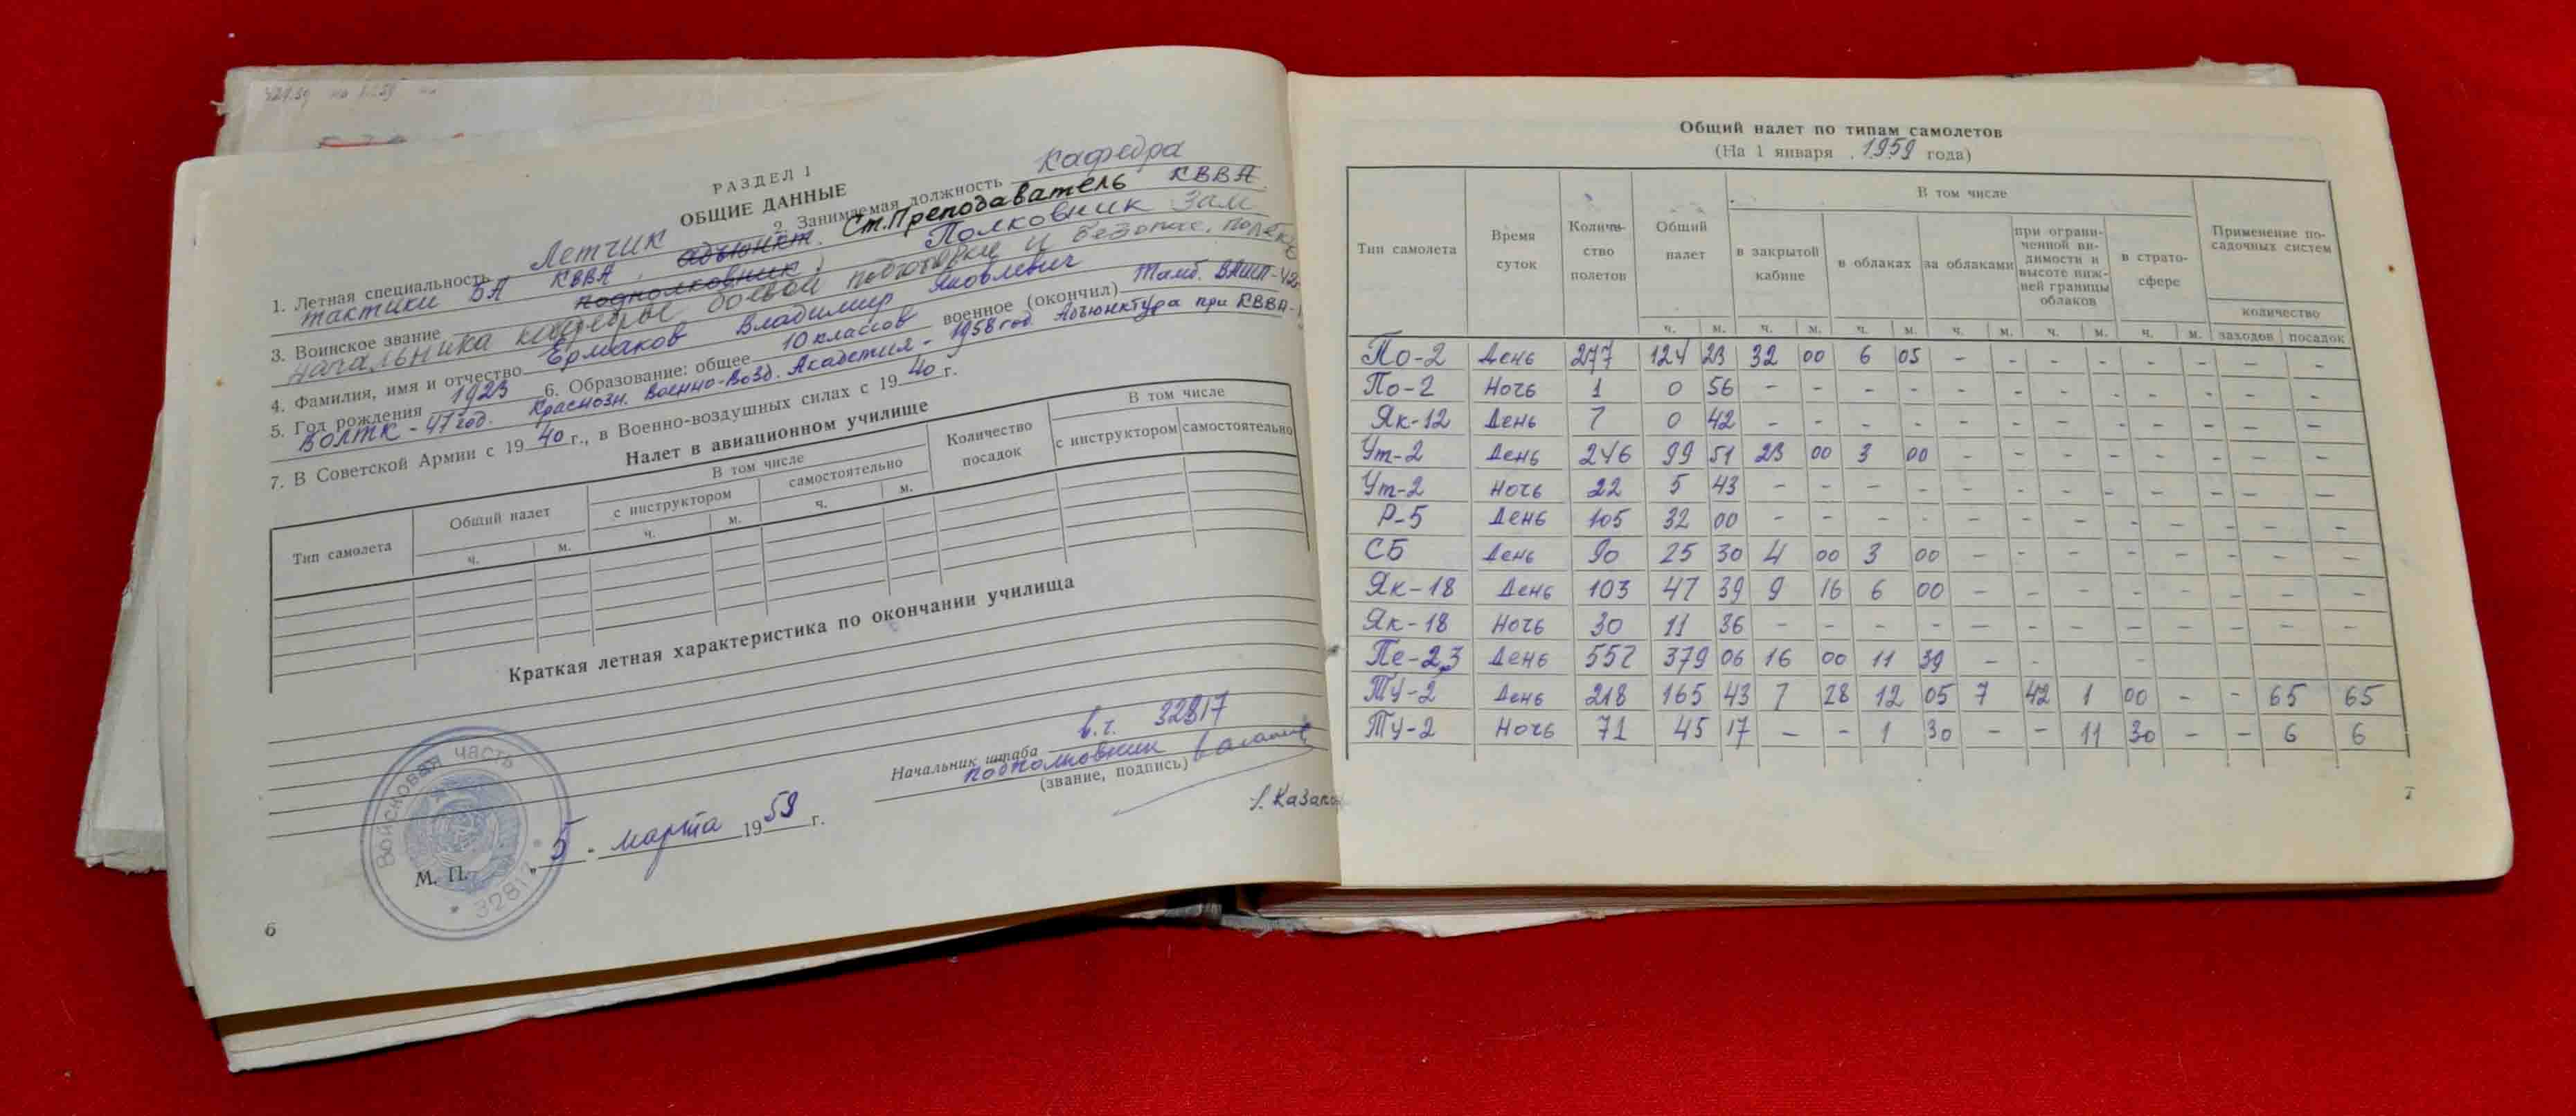 РАЗДЕЛ I
ОБЩИЕ ДАННЫЕ
1. Летная специальность Летчик 2. Занимаемая должность кафедра
тактики БА КВВА, адъюнкт. Ст.Преподаватель КВВА.
3. Воинское звание подполковник, Полковник Зам
начальника кафедры боевой подготовки и безопас. полетов
4. Фамилия, имя и отчество Ермаков Владимир Яковлевич
5. Год рождения 1923 6. Образование: общее 10 классов военное (окончил) Тамб. ВАШП-42г
ВОЛТК-47 год. Краснозн. Военно-Возд. Академия - 1958 год Адъюнктура при КВВА-
7. В Советской Армии с 1940 г., в Военно-воздушных силах с 1940 г.
Налет в авиационном училище
Тип самолета Общий налет В том числе Количество посадок В том числе
с инструктором самостоятельно с инструктором самостоятельно
ч. м. ч. м. ч. м.
Краткая летная характеристика по окончании училища
Начальник штаба в.ч. 32817
подполковник
(звание, подпись)
М. П. „5" марта 1959 г.
Войсковая часть
* 32817 *
6
Общий налет по типам самолетов
(На 1 января 1959 года)
Тип самолета Время суток Количество полетов Общий налет В том числе Применение посадочных систем
в закрытой кабине в облаках за облаками при ограниченной видимости и высоте нижней границы облаков в стратосфере количество
ч. м. ч. м. ч. м. ч. м. ч. м. ч. м. заходов посадок
По-2 День 277 124 23 32 00 6 05 - - - - - - - -
По-2 Ночь 1 0 56 - - - - - - - - - - - -
Як-12 День 7 0 42 - - - - - - - - - - - -
Ут-2 День 246 99 51 23 00 3 00 - - - - - - - -
Ут-2 Ночь 22 5 43 - - - - - - - - - - - -
Р-5 День 105 32 00 - - - - - - - - - - - -
СБ День 90 25 30 4 00 3 00 - - - - - - - -
Як-18 День 103 47 39 9 16 6 00 - - - - - - - -
Як-18 Ночь 30 11 36 - - - - - - - - - - - -
Пе-2,3 День 552 379 06 16 00 11 39 - - -
ТУ-2 День 218 165 43 7 28 12 05 7 42 1 00 - - 65 65
ТУ-2 Ночь 71 45 17 - - 1 30 - - 11 30 - - 6 6
7